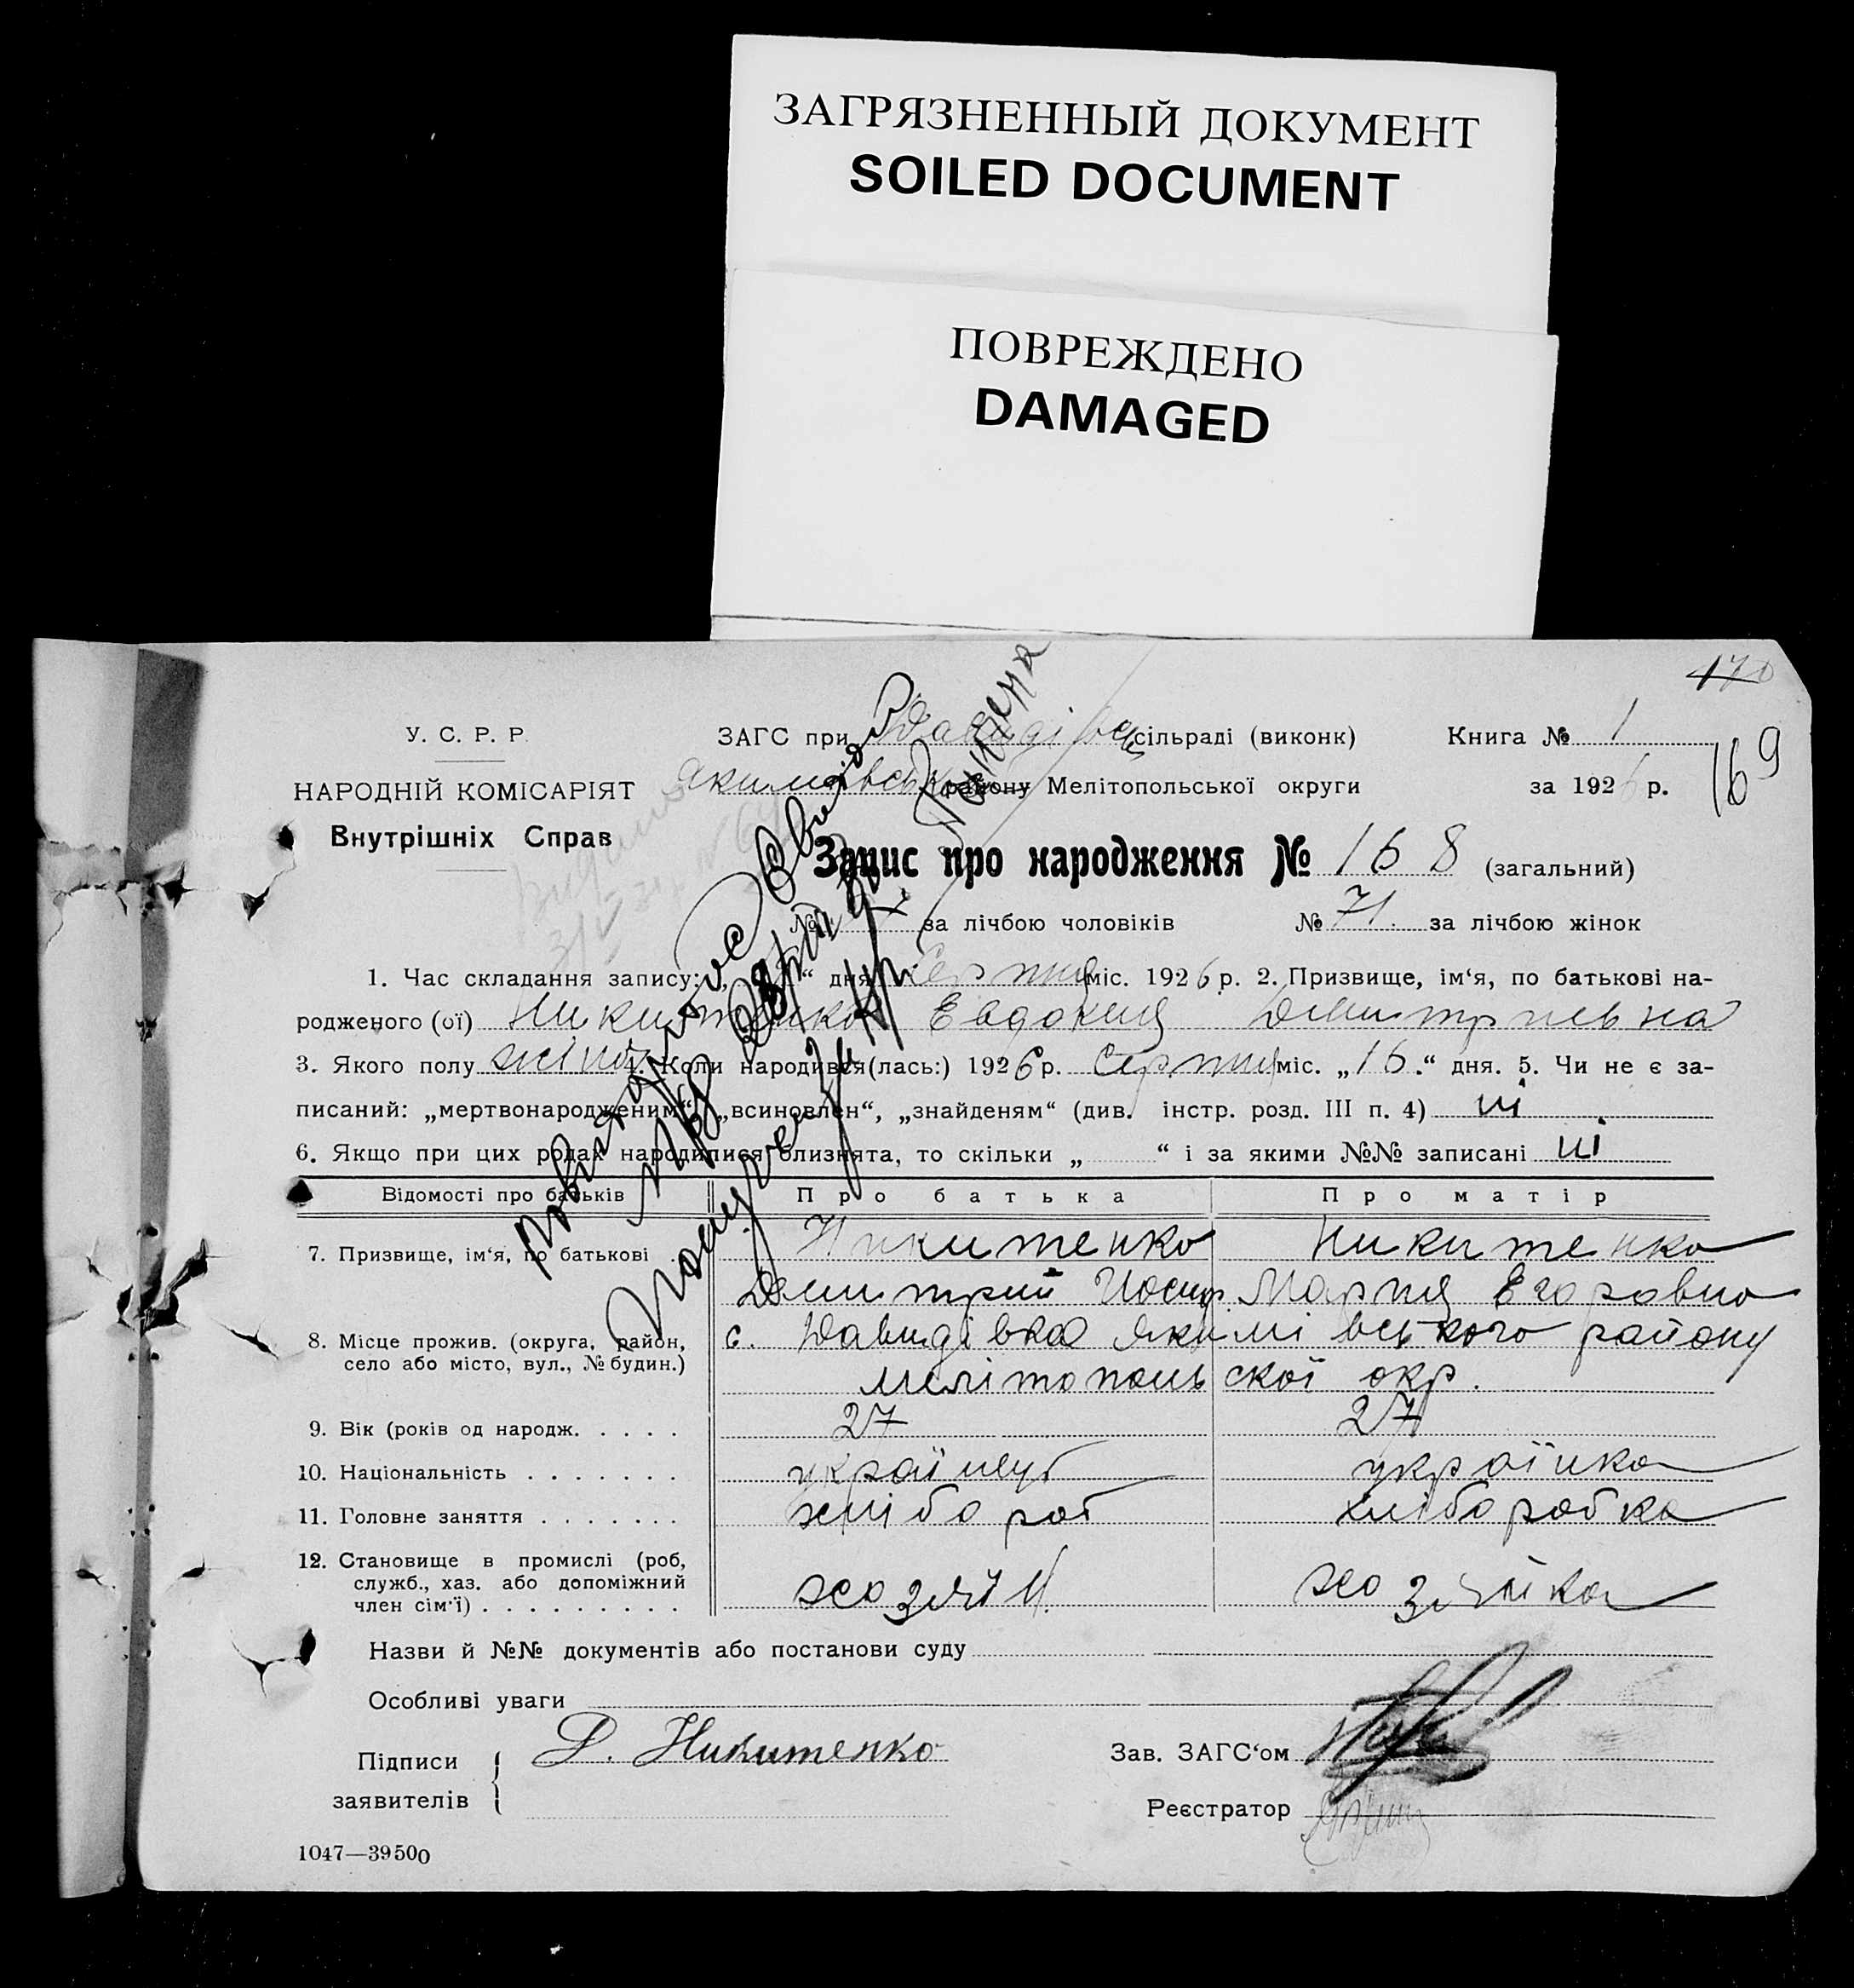 ЗАГРЯЗНЕННЫЙ ДОКУМЕНТ
SOILED DOCUMENT
ПОВРЕЖДЕНО
DAMAGED
170
У. С. Р. Р.
ЗАГС при Давидівськ сільраді (виконк)
Книга № 1
169
НАРОДНІЙ КОМІСАРІЯТ
Якимівськ району Мелітопольської округи
за 1926 р.
Внутрішніх Справ
Запис про народження № 168 (загальний)
№ за лічбою чоловіків № 71. за лічбою жінок
1. Час складання запису: „ “ дня Серпня міс. 1926 р. 2. Призвище, ім‘я, по батькові на-
родженого (ої) Никитенко Евдокия Демитриевна
3. Якого полу жіноч. 4. Коли народився(лась:) 1926 р. Серпня міс. „16.“ дня. 5. Чи не є за-
писаний: „мертвонародженим“, „всиновлен“, „знайденям“ (див. інстр. розд. III п. 4) ні
6. Якщо при цих родах народилися близнята, то скільки „ “ і за якими №№ записані ні
Відомості про батьків Про батька Про матір
7. Призвище, ім‘я, по батькові Никитенко Никитенко
Демитрий Иосиф. Мария Егоровна
8. Місце прожив. (округа, район, с. Давидівка Якимівського району
село або місто, вул., № будин.)
мелітопольскої окр.
9. Вік (років од народж. 27 27
10. Національність українец українка
11. Головне заняття хлібороб хлiборобка
12. Становище в промислі (роб, служб., хаз. або допоміжний член сім‘ї) хозяїн хозяйка
Назви й №№ документів або постанови суду
Особливі уваги
Підписи Д. Никитенко
Зав. ЗАГС‘ом
заявителів
Реєстратор
1047—39500